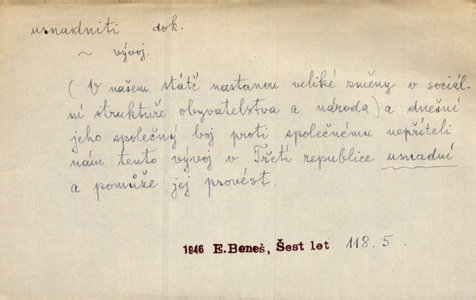 usnadniti dok.
~ vývoj.
(V našem státě nastanou veliké změny v sociál-
ní struktuře obyvatelstva a národa) a dnešní
jeho společný boj proti společnému nepříteli
nám tento vývoj v Třetí republice usnadní
a pomůže jej provést.
1946 E. Beneš, Šest let 118. 5.